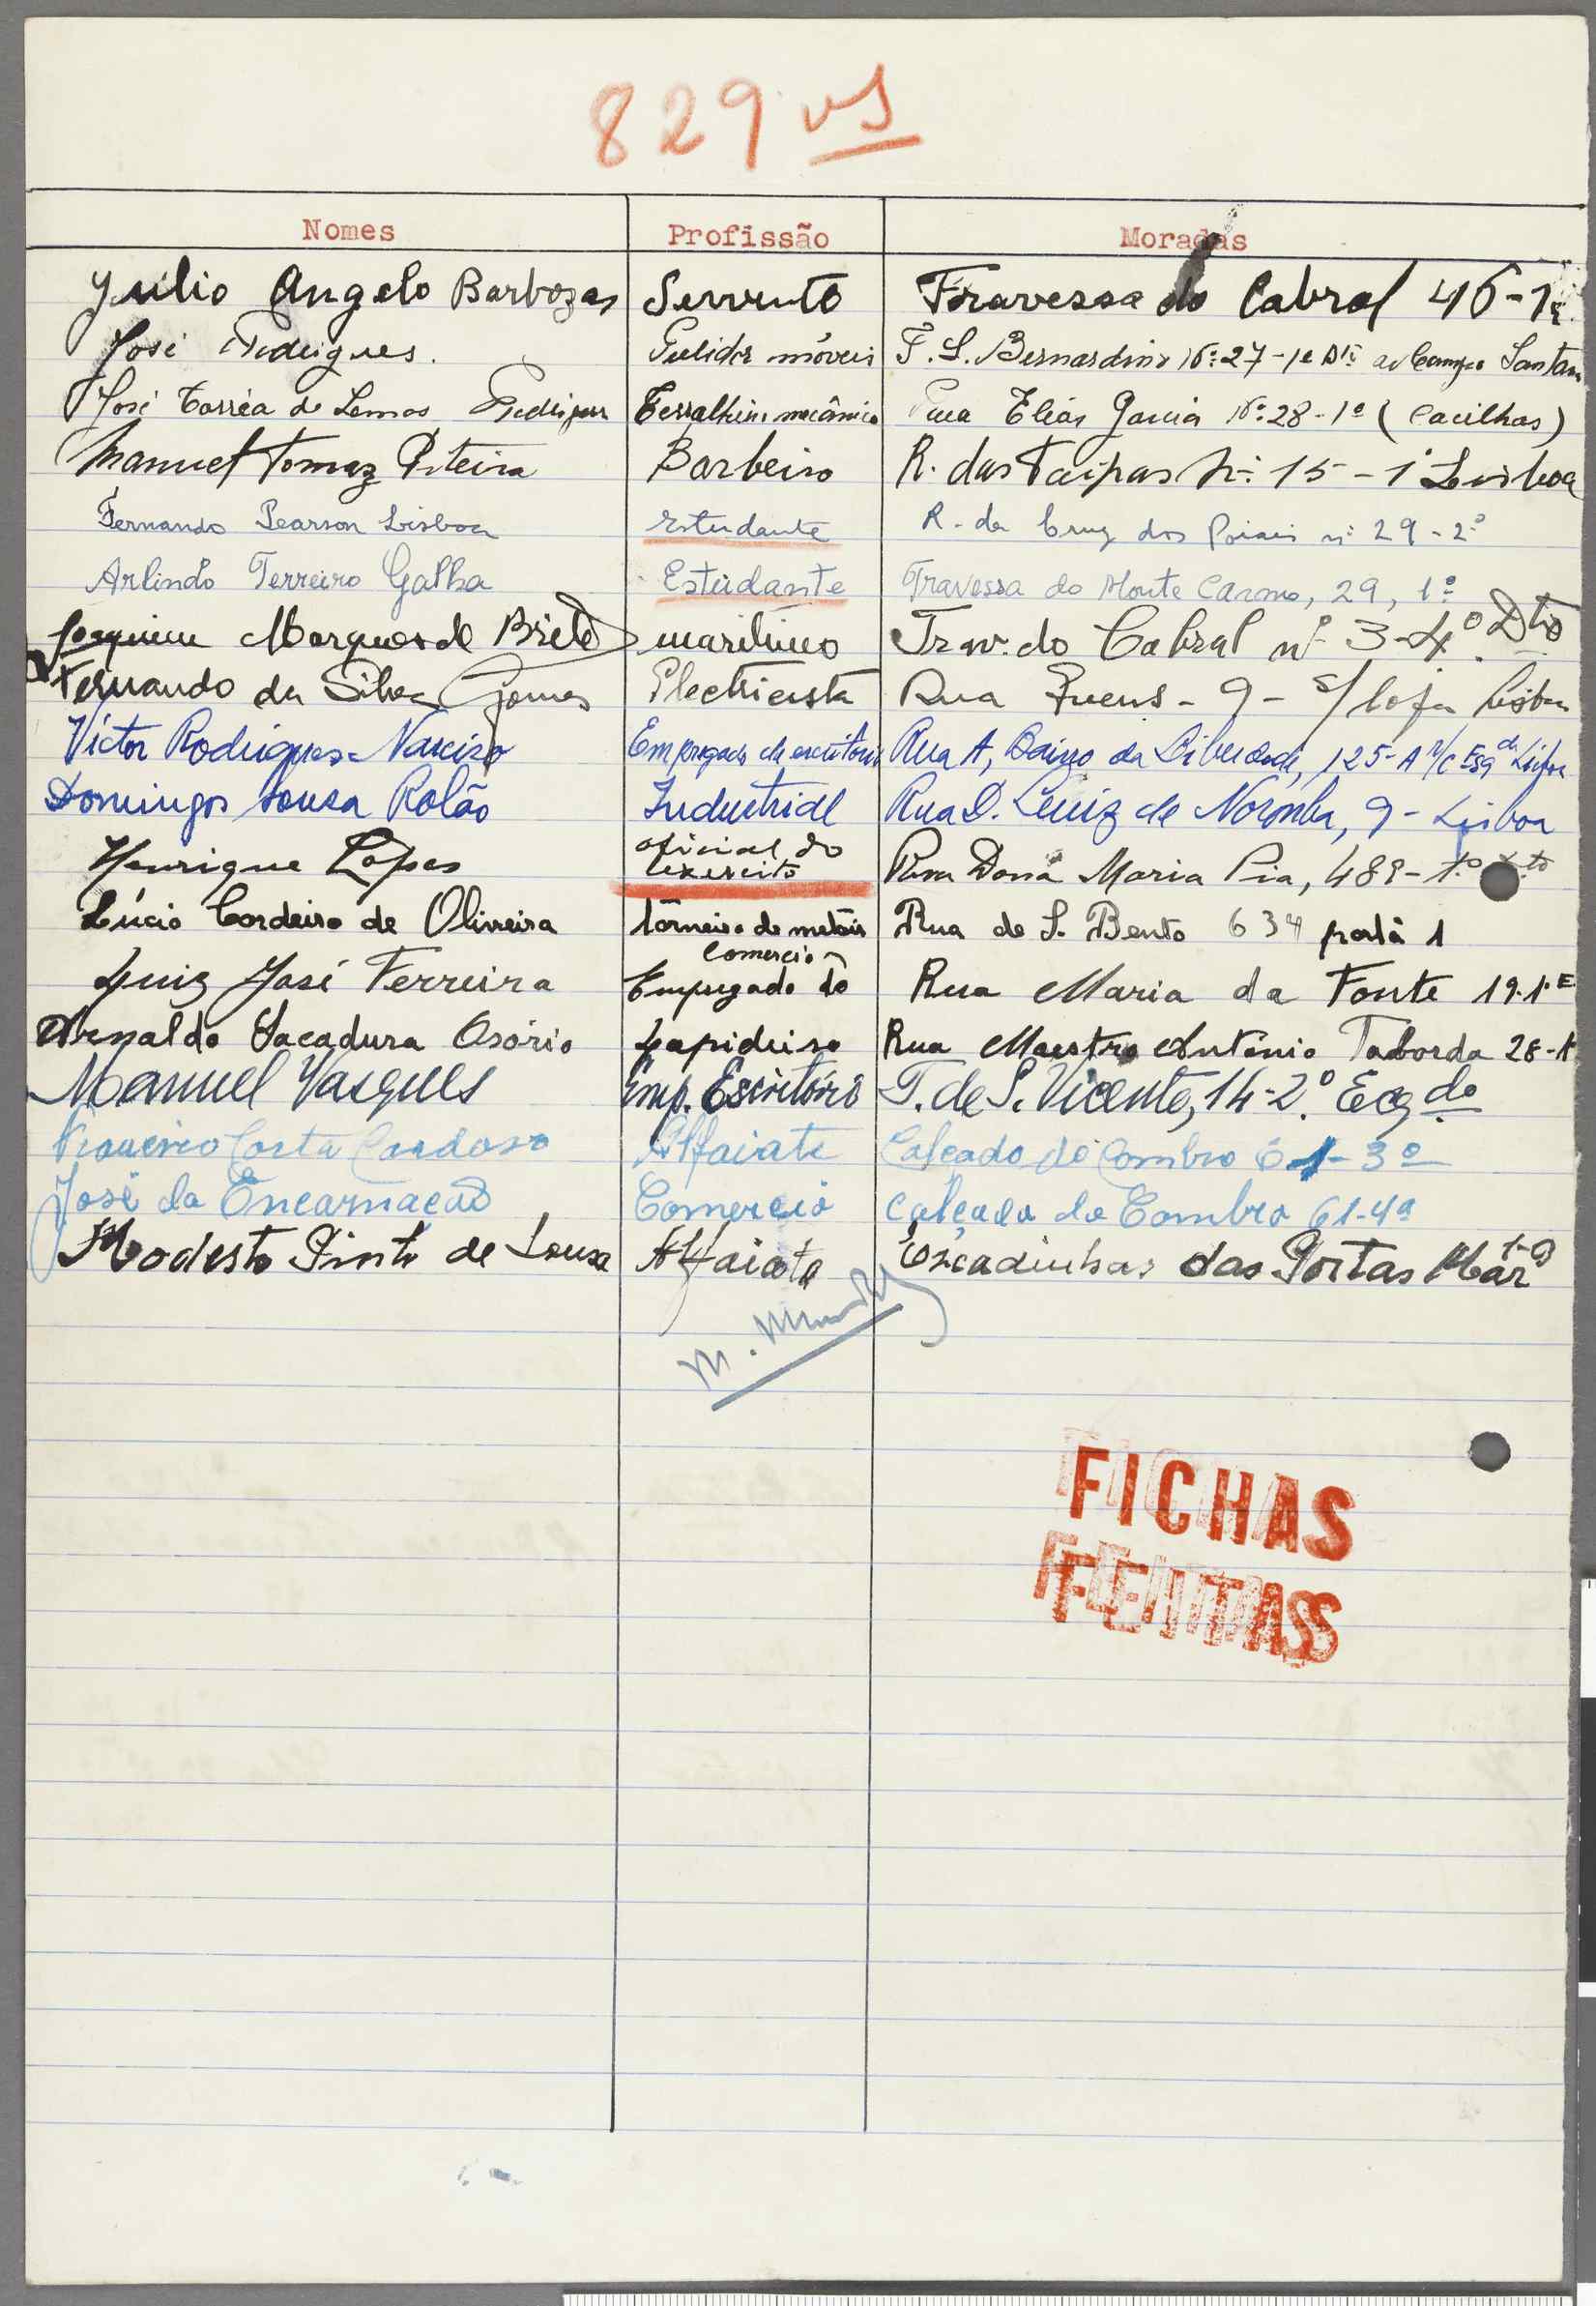 829 vs
Nomes Profissão Moradas
Julio Angelo Barbozas Servente Travessa do Cabral 46-1º
José Rodrigues. Pulidor móveis T. S. Bernardino Nº 27-1º Dtº ao Campo Santana
José Corrêa de Lemos Rodrigues Serralheiro mecânico Rua Elias Garcia Nº 28-1º (Cacilhas)
Manuel Tomaz Piteira Barbeiro R. das Taipas Nº 15-1º Lisboa
Fernando Pearson Lisboa estudante R. da Cruz dos Poiais nº 29-2º
Arlindo Ferreiro Galha Estudante Travessa do Monte Carmo, 29, 1º
Joaquim Marques de Brito maritimo Trav. do Cabral nº 3-4º Dto
Fernando da Silva Gomes Electricista Rua 9 - s/loja Lisboa
Victor Rodrigues Narciso Empregado de escritório Rua A, Bairro da Liberdade, 125-A r/c Esqdo Lisboa
Domingos Sousa Rolão Industrial Rua D. Luiz de Noronha, 9 - Lisboa
Henrique Lopes oficial do exercito Rua Dona Maria Pia, 489-1º
Lúcio Cordeiro de Oliveira torneiro de metais Rua de S. Bento 634 porta 1
Luiz José Ferreira Empregado do Comercio Rua Maria da Fonte 19-1º E
Arnaldo Sacadura Osório Lapideiro Rua Maestro António Taborda 28-1º
Manuel Vasques Emp. Escritório T. de S. Vicente, 14-2º Esqdo
Costa Cardoso Alfaiate Calçado do Combro 61-3º
José da Encarnação Comercio Calçada do Combro 61-4º
Modesto Pinto de Sousa Alfaiate Escadinhas das Portas Mar
M.
FICHAS
FEITAS